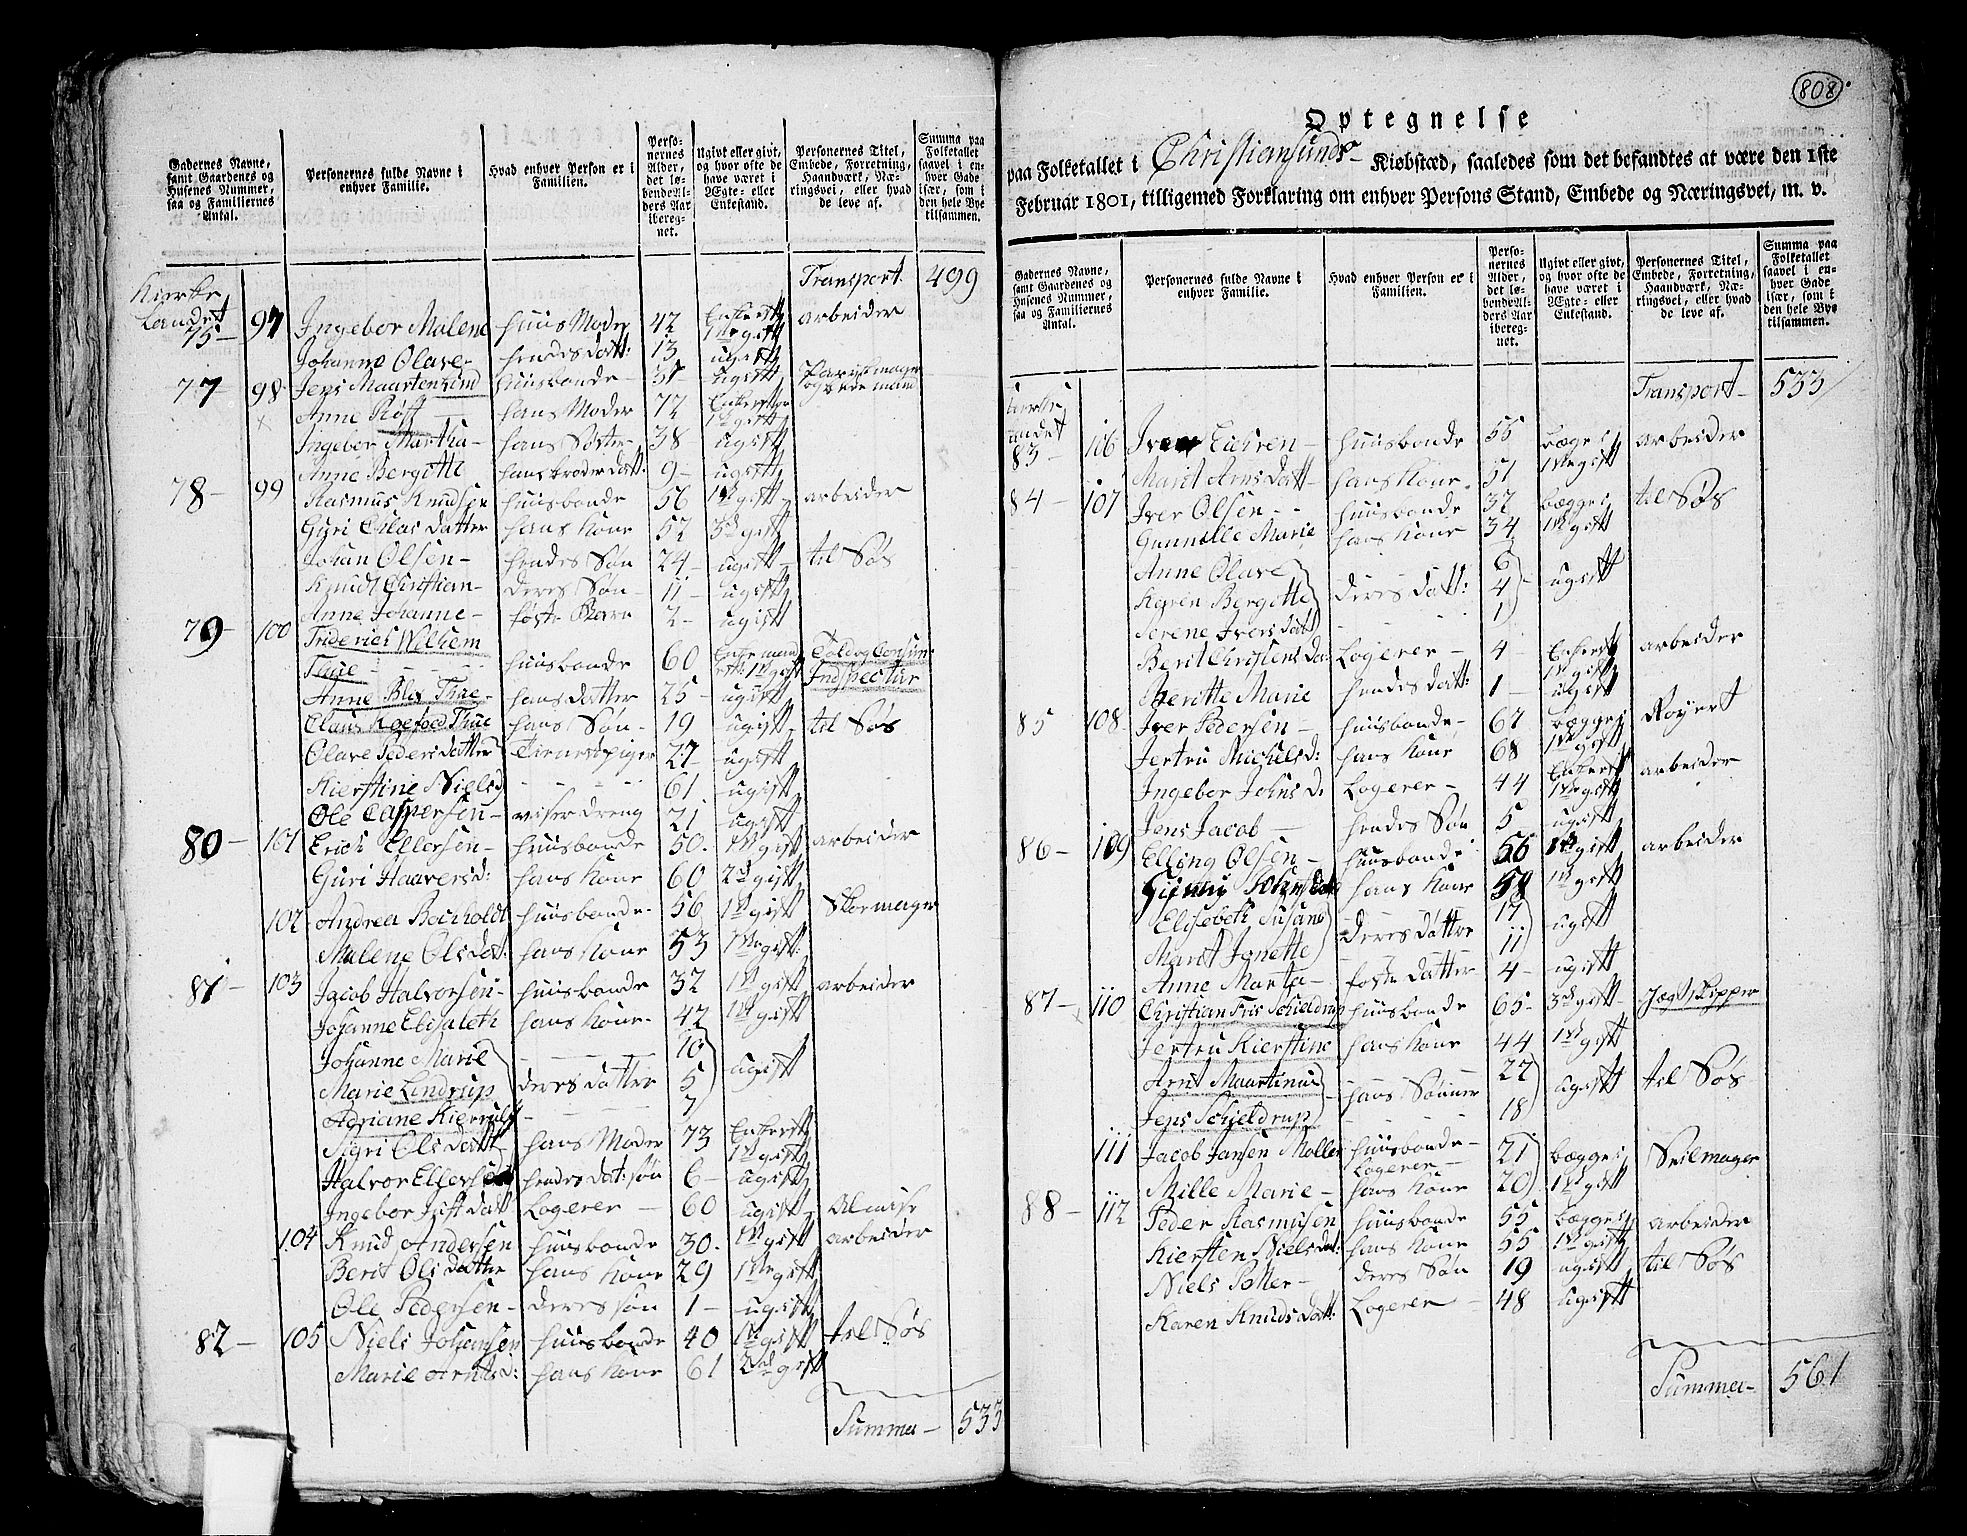 808
Gadernes Navne, samt Gaardenes og Husenes Nummer, saa og Familiernes Antal.
Personernes fulde Navne i enhver Familie.
Hvad enhver Person er i Familien.
Personernes Alder, det løbende Alders Aar iberegnet.
Ugivt eller givt, og hvor ofte de have været i Ægte- eller Enkestand.
Personernes Titel, Embede, Forretning, Haandværk, Næringsvei, eller hvad de leve af.
Summa paa Folketallet saavel i enhver Gade især, som i den hele Bye tilsammen.
Transport 499
Kierke Landet
75 — 97 Ingebor Malene huus Moder 42 Enkerst 1ste gift arbeider
Johanne Olave hendes datt: 13 ugift
77 98 Jens Maarten Lind huusbonde 37 ugift
Anne Røst hans Moder 72 1ste gift
Ingebor Martha hans Søster 38 ugift
Anne Bergette hans broder datt: 9 — ugift
78 — 99 Rasmus Knudsen huusbonde 56 1ste gift arbeider
Guri Olas datter hans Kone 52 3de gift
Johan Olsen — hendes Søn 24 — ugift til Søs
Knudt Christian — deres Søn — 11 — ugift
Anne Johanne — foste Barn 2 — ugift
79 — 100 Friderich Welhem Thue huusbonde 60 Told og Consum: Indspectør
Anne Blix Thue — hans datter 25 — ugift
Claus Koefoed Thue hans Søn — 19 ugift til Søs
Olave Peders datter Tieneste piger 27 — ugift
Kierstine Nielsd 61 ugift
Ole Caspersen — viser dreng 21 ugift
80 — 101 Erich Ellefsen — huusbonde 50. 1ste gift arbeider
Guri Haaversd: hans Kone 60 2de gift
102 Andrea Bocholdt huusbonde — 56 1ste gift Skoemager
Malene Olsdat: hans Kone 53 1ste gift
81 — 103 Jacob Halvorsen — huusbonde 32 1ste gift arbeider
Johanne Elisabeth hans Kone — 42 1ste gift
Johanne Marie 10
Marie Lindrup deres datter 5 ugift
Adriane Kierulf 7
Sigri Ols datt hans Moder 73 Enkerst 1ste gift
Halvor Ellefsen hendes dat: søn 6 — ugift
Ingebor datt Logerer — 60 ugift Almise
104 Knud Andersen huusbonde 30. 1ste gift arbeider
Berit Ols datter hans Kone 29 1ste gift
Ole Pedersen — deres søn 1 — ugift
82 — 105 Niels Johansen huusbonde 40 1ste gift til Søs
Marie Arntsd: hans Kone 61 2de gift
Summa — 533
Optegnelse
paa Folketallet i Christiansunds Kiøbstæd, saaledes som det befandtes at være den 1ste
Februar 1801, tilligemed Forklaring om enhver Persons Stand, Embede og Næringsvei, m. v.
Gadernes Navne, samt Gaardenes og Husenes Nummer, saa og Familiernes Antal.
Personernes fulde Navne i enhver Familie.
Hvad enhver Person er i Familien.
Personernes Alder, det løbende Alders Aar iberegnet.
Ugivt eller givt, og hvor ofte de have været i Ægte- eller Enkestand.
Personernes Titel, Embede, Forretning, Haandværk, Næringsvei, eller hvad de leve af.
Summa paa Folketallet saavel i enhver Gade især, som i den hele Bye tilsammen.
Transport — 533
83 — 106 Iver — huusbonde 55 begge arbeider
Marit Arnsdatt — hans Kone 51 1ste gift
84 — 107 Iver Olsen — huusbonde 32 begge til Søs
Gunnille Marie hans Kone 34 1ste gift
Anne Olave 6
Karen Bergette deres datt: 4 ugift
Serene Ivers datt 1
Berit Christens Logerer — 4 Enkerst 1ste gift arbeider
Beritte Marie hendes datt: 1 — ugift
85 — 108 Iver Pedersen — huusbonde 67 begge
Jertru Michelsd: hans Kone 68 1ste gift
Ingebor Johnsd: Logerer — 44 Enkerst 1ste gift arbeider
Jens Jacob — hendes Søn 5 ugift
86 — 109 Elling Olsen — huusbonde 56 1ste gift arbeider
hans Kone 58 1ste gift
Elisebeth Susane 17
deres døttre ugift
Marit Jonette 11
Anne Marta — foste datter 4 — ugift
87 — 110 Christian Friis Schieldrup huusbonde 65 — 3de gift Jægt skipper
Jertru Kierstine hans Kone 44 1ste gift
Arnt Maartinus 22
hans Sønner ugift til Søs
Jens Schieldrup 18
111 Jacob Jansen Møller huusbonde — Logerer — 21 begge Seilmager
Mille Marie — hans Kone 20 1ste gift
88 — 112 Peder Rasmusen huusbonde 55 begge arbeider
Kiersten Nielsdat: hans Kone 55 1ste gift
Niels — deres Søn 19 ugift til Søs
Karen Knuds datt: Logerer 48 ugift
Summa — 561